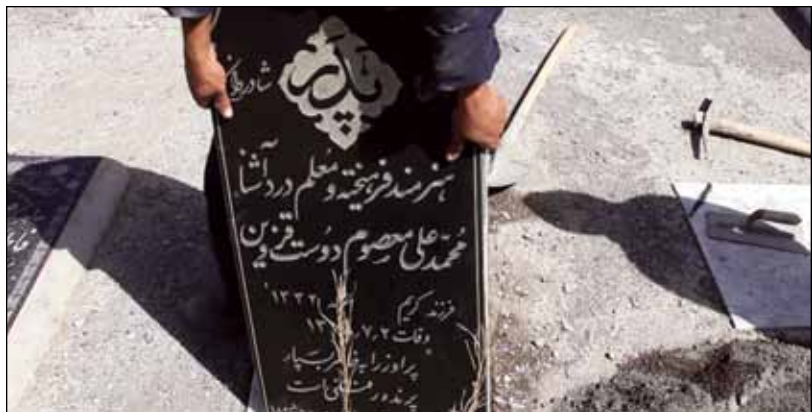 پدر
شادروان
هنرمند فرهیخته و معلم درد آشنا
محمد علی معصوم دوست قزوین
فرزند کریم ۱۳۲۲
وفات ۷٫۲
پرواز را به خاطر بسپار
پرنده